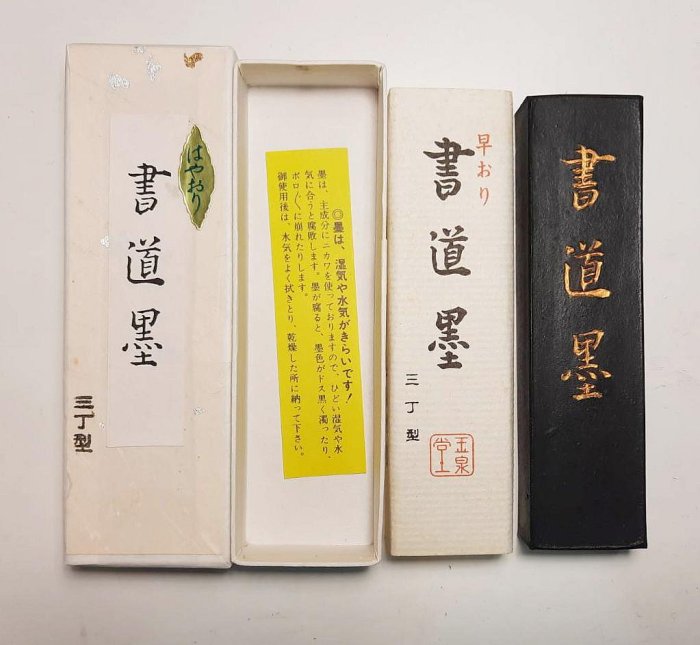 はやおり
書道墨
三丁型
◎墨は、湿気や水気がきらいです!
墨は、主成分にニカワを使っておりますので、ひどい湿気や水
気に合うと腐敗します。墨が腐ると、墨色がドス黒く濁ったり、
ボロ〳〵に崩れたりします。
御使用後は、水気をよく拭きとり、乾燥した所に納って下さい。
早おり
書道墨
三丁型
玉泉堂
書道墨